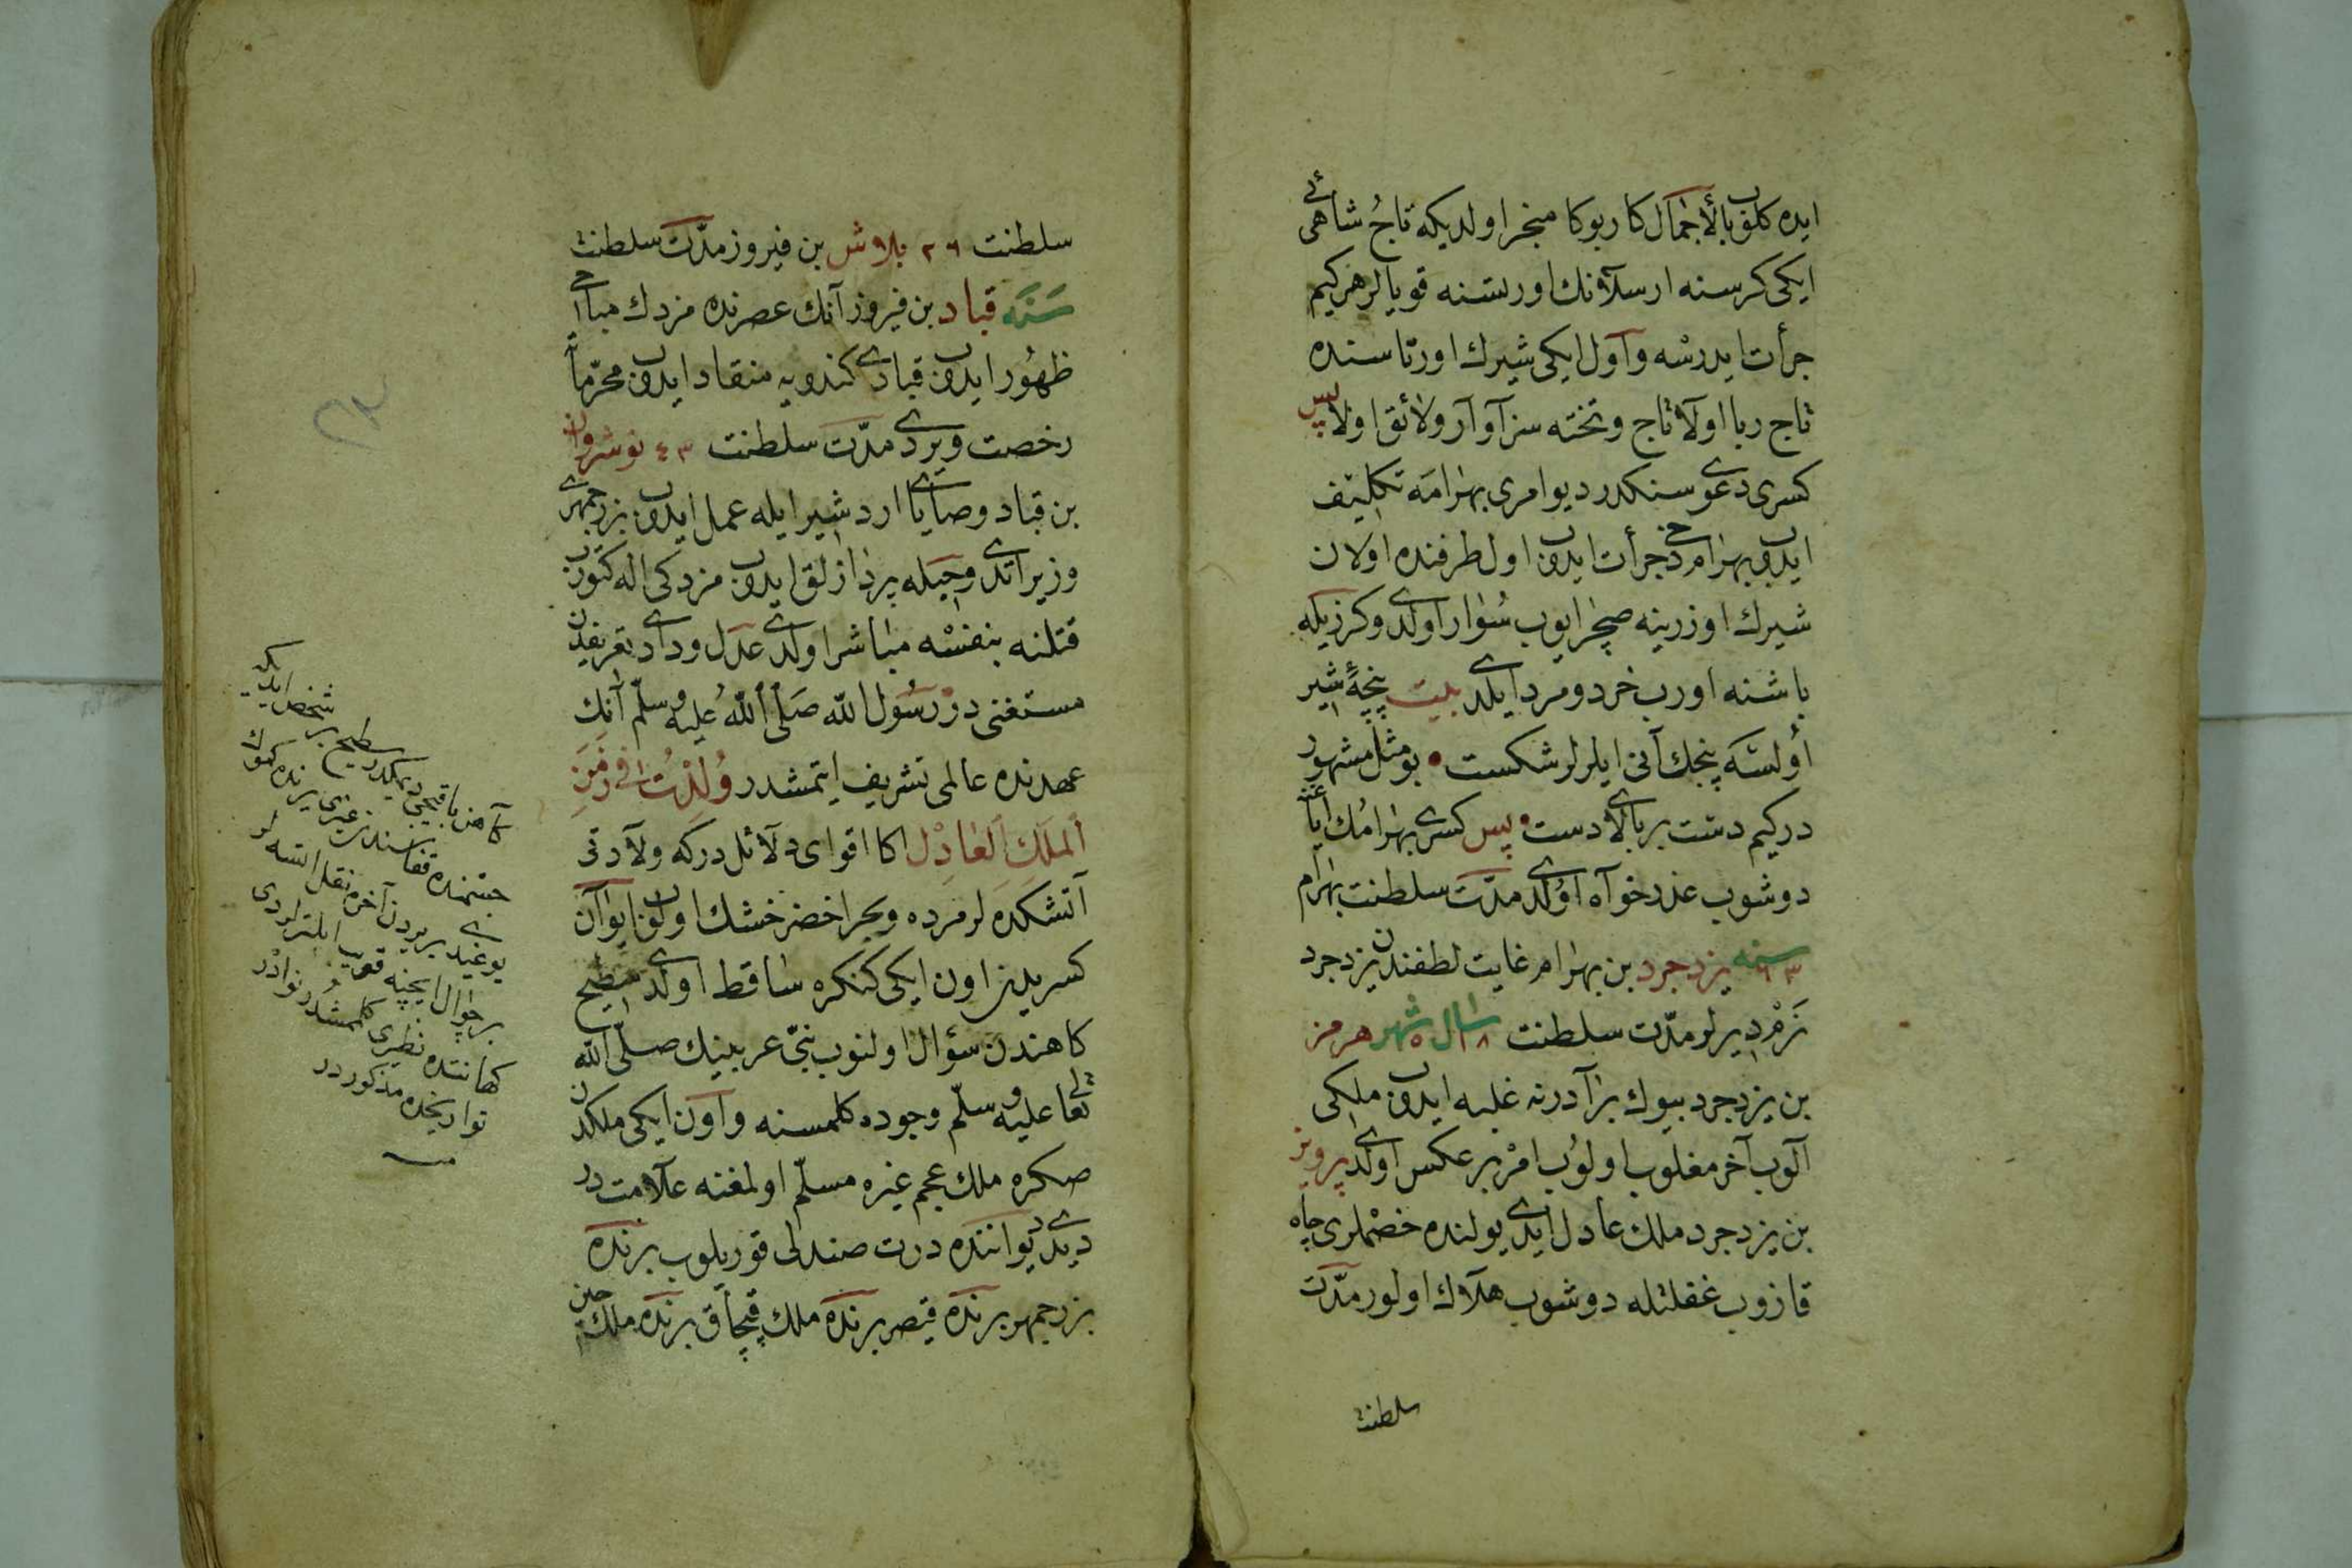 ایده کلوب بالأجمال کار بوکا منجر اولدیکه تاج شاهئی
ایکی کرسنه ارسلانک اورتسنه قویالر هرکیم
جرأت ایدرسه و آول ایکی شیرک اورتاسنده
تاج ربا اولا تاج و تخته سزآوآر و لائق اولا پس
کسری دعوی سنکدر دیو امری بهرامه تکلیف
ایدوب بهرام دخی جرأت ایدوب اول طرفنده اولان
شیرک اوزرینه صچرایوب سوار اولدی و کرزیکه
باشنه اورب خرد و مرد ایلدی بیت پنچهٔ شیر
أولسه پنجک آنی ایلرلر شکست • بو مثل مشهور
درکیم دست بر بالای دست • پس کسری بهرامک ایاغنه
دوشوب عذر خوآه اولدی مدّت سلطنت بهرام
سنه ٦٣ یزدجرد بن بهرام غایت لطفندن یزدجرد
نرم دیرلر مدّت سلطنت ١٨ سال ٥ شهر هرمز
بن یزدجرد بیوک برآدرنه غلبه ایدوب ملکی
آلوب آخر مغلوب اولوب امر بر عکس اولدی پرویز
بن یزدجرد ملک عادل ایدی یولنده خصملری چاه
قازوب غفلتله دوشوب هلآک اولور مدّت
سلطنت
سلطنت ٢٦ بلاش بن فیروز مدّت سلطنت
سنه قباد بن فیروز آنک عصرنده مزدک مباحی
ظهور ایدوب قبادی کندویه منقاد ایدوب محرّماته
رخصت ویردی مدّت سلطنت ٤٣ نوشروان
بن قباد وصایای اردشیر ایله عمل ایدوب بزرجمهری
وزیر اتدی و حیله پردازلق ایدوب مزدکی اله کتورب
قتلنه بنفسه مباشر اولدی عدل و دادی تعریفدن
مستغنی در رسول الله صلی الله علیه وسلّم آنک
عهدنده عالمی تشریف ایتمشدر ولدت فی زمن
الملک العادل اکا اقوای دلآئل درکه ولآدتی
آتشکده لر مرده و بحر اخضر خشک اولوب ایوآن
کسریدن اون ایکی کنکره ساقط اولدی سطیح
کاهندن سؤال اولنوب نبیّ عربینک صلّی الله
تعالی علیه وسلّم وجوده کلمسنه و آون ایکی ملکدن
صکره ملک عجم غیره مسلّم اولمغنه علآمت در
دیدی دیواننده درت صندلی قوریلوب برنده
بزرجمهر برنده قیصر برنده ملک قپچآق برنده ملک چین
سطیح بر شخص ایدیکه
جثه‌سنده قفاسندن غیری یرنده کموک
یوغیدی بر یردن آخره نقل اتسه لر
بر چوال ایچنه قویوب ایلتورلردی
کهانتده نظیری کلمشدر نوادر
تواریخده مذکوردر